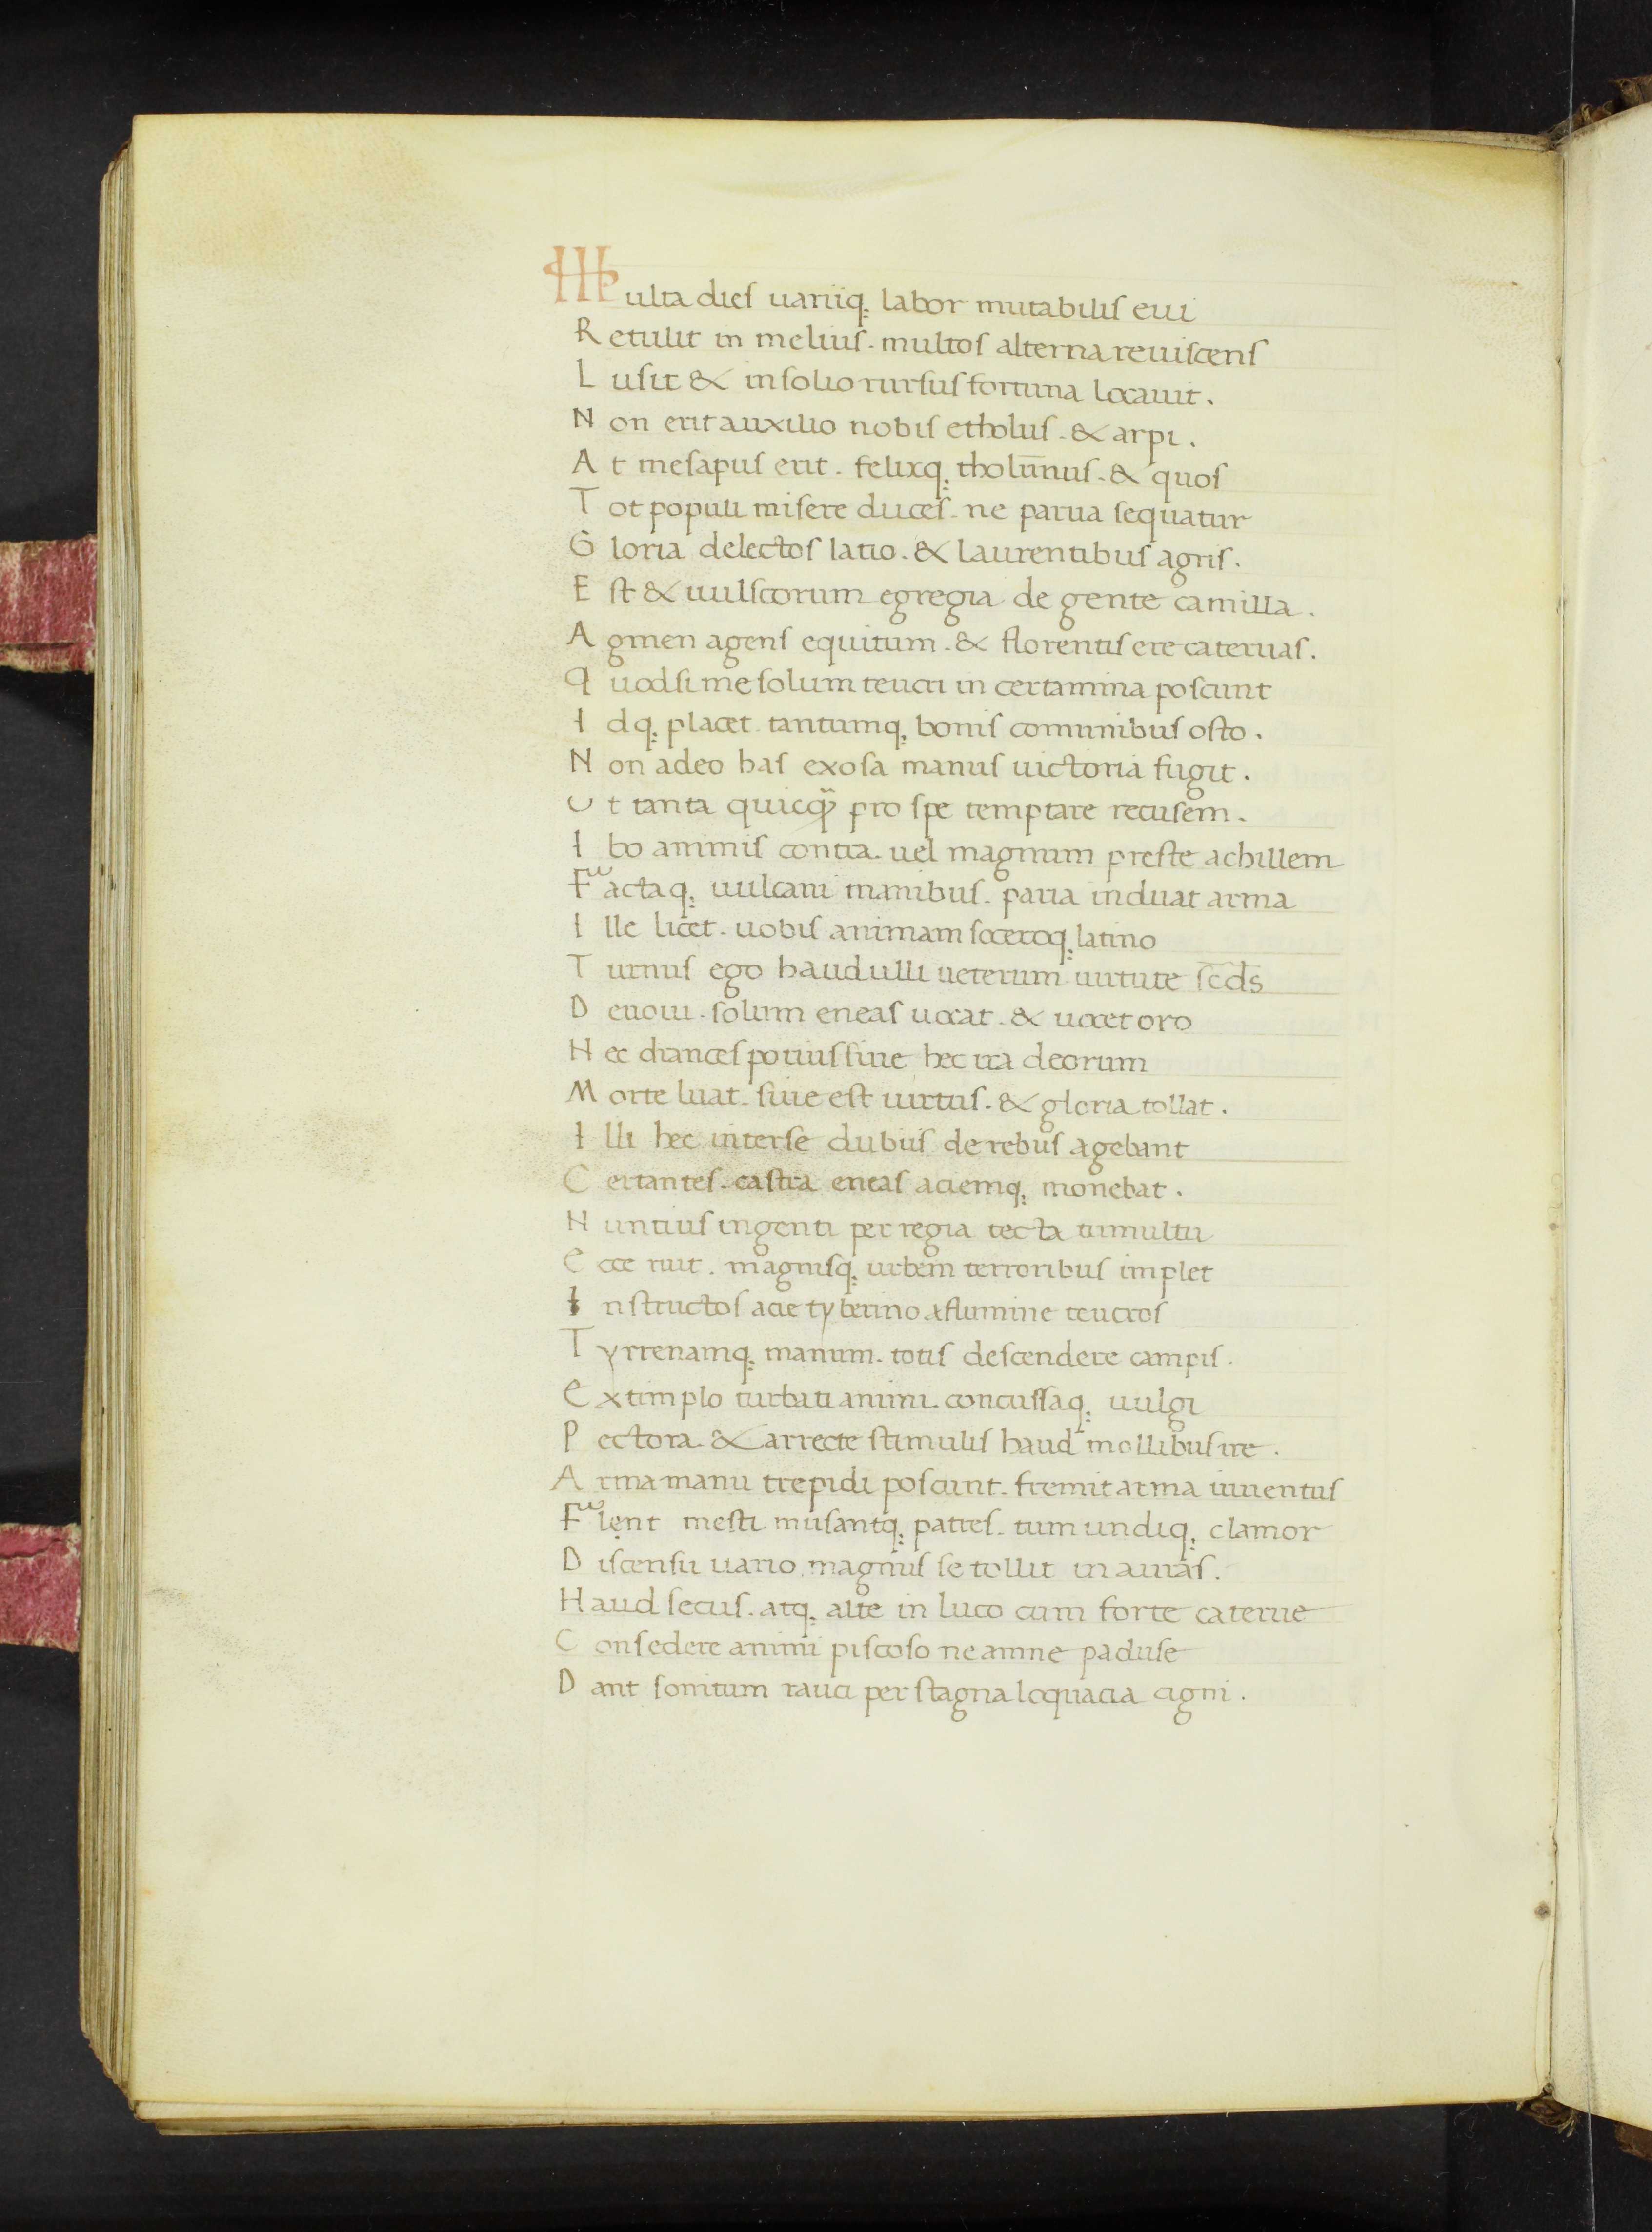 Multa dies uariiq; labor mutabilis eui
Retulit in melius. multos alterna reuiscens
Lusit & in solio rursus fortuna locauit.
Non erit auxilio nobis etholus. & arpi.
At mesapus erit. felixq; tholūnus. & quos
Tot populi misere duces. ne parua sequatur
Gloria delectos latio. & laurentibus agris.
Est & uulscorum egregia de gente camilla.
Agmen agens equitum. & florentis ere cateruas.
Quodsi me solum teucri in certamina poscunt
Idq; placet. tantumq; bonis comunibus osto.
Non adeo has exosa manus uictoria fugit.
Ut tanta quicq̄ pro spe temptare recusem.
Ibo animis contra. uel magnum preste achillem
Factaq; uulcani manibus. paria induat arma
Ille licet. uobis animam soceroq; latino
Turnus ego haud ulli ueterum uirtute scds
Deuoui. solum eneas uocat. & uocet oro
Nec drances potius siue hec ira deorum
Morte luat. siue est uirtus. & gloria tollat.
Illi hec inter se dubiis de rebus agebant
Certantes. castra eneas aciemq; monebat.
Nuntius ingenti per regia tecta tumultu
Ecce ruit. magnisq; urbem terroribus implet
Instructos acie tyberino a flumine teucros
Tyrrenamq; manum. totis descendere campis.
Extimplo turbati animi. concussaq; uulgi
Pectora. & arrecte stimulis haud mollibus ire.
Arma manu trepidi poscunt. fremit arma iuuentus
Flent mesti musantq; patres. tum undiq; clamor
Discensu uario magnus se tollit in auras.
Haud secus. atq; alte in luco cum forte caterue
Consedere animi piscoso ne amne paduse
Dant sonitum rauci per stagna loquacia cigni.